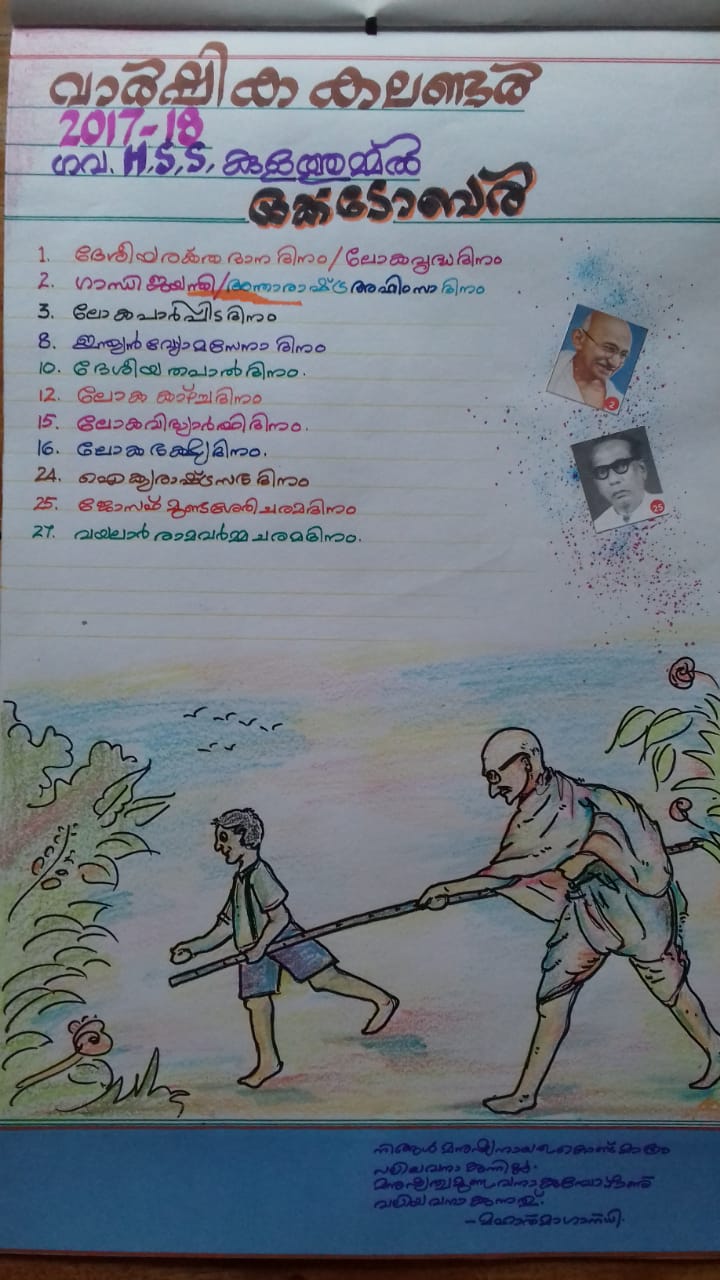 വാർഷിക കലണ്ടർ
2017-18
ഗവ. H.S.S. കുളത്തുമ്മൽ
ഒക്ടോബർ
1. ദേശീയരക്തദാന ദിനം/ലോകവൃദ്ധദിനം
2. ഗാന്ധി ജയന്തി/അന്താരാഷ്ട്രഅഹിംസാദിനം
3. ലോകപാർപ്പിടദിനം
8. ഇന്ത്യൻ വ്യോമസേനാ ദിനം
10. ദേശീയ തപാൽ ദിനം.
12. ലോക കാഴ്ചദിനം
15. ലോകവിദ്യാർത്ഥിദിനം.
16. ലോക ഭക്ഷ്യദിനം.
24. ഐക്യരാഷ്ട്രസഭ ദിനം
25. ജോസഫ് മുണ്ടശ്ശേരി ചരമദിനം
27. വയലാർ രാമവർമ്മ ചരമദിനം.
2
25
നിങ്ങൾ മനുഷ്യനായതുകൊണ്ട് മാത്രം
വലിയവനാകുന്നില്ല.
മനുഷ്യത്വമുണ്ടവനാകുമ്പോഴാണ്
വലിയവനാകുന്നത്.
-മഹാത്മാഗാന്ധി.